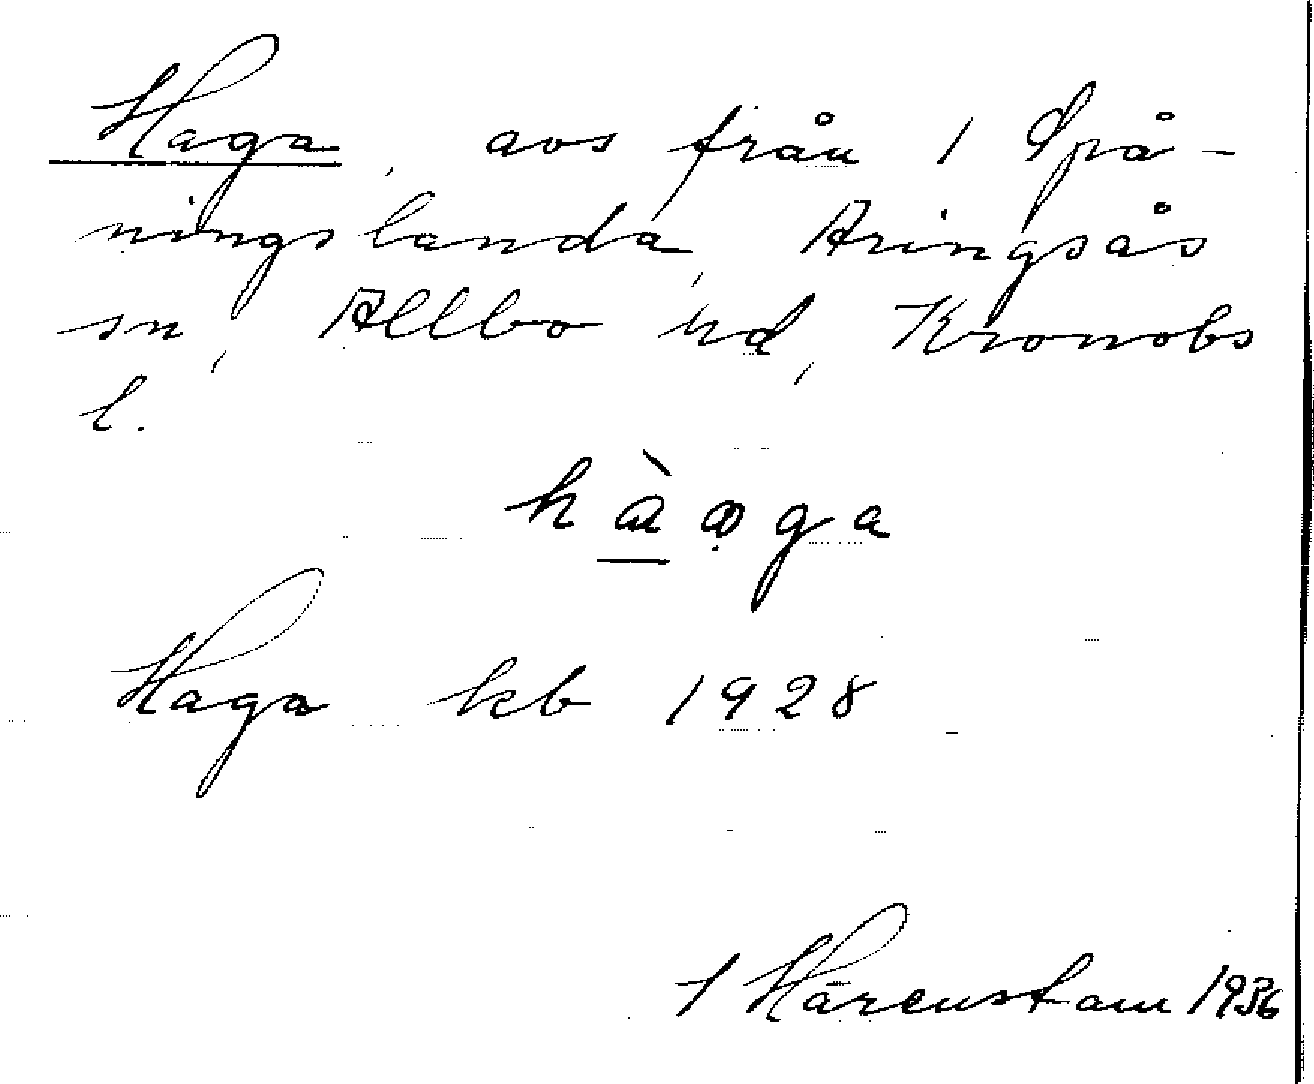 Haga, avs från 1 Spå-
ningslanda, Aringsås
sn, Allbo hd, Kronobs
l.
hàọga
Haga kb 1928
I Härenstam 1936